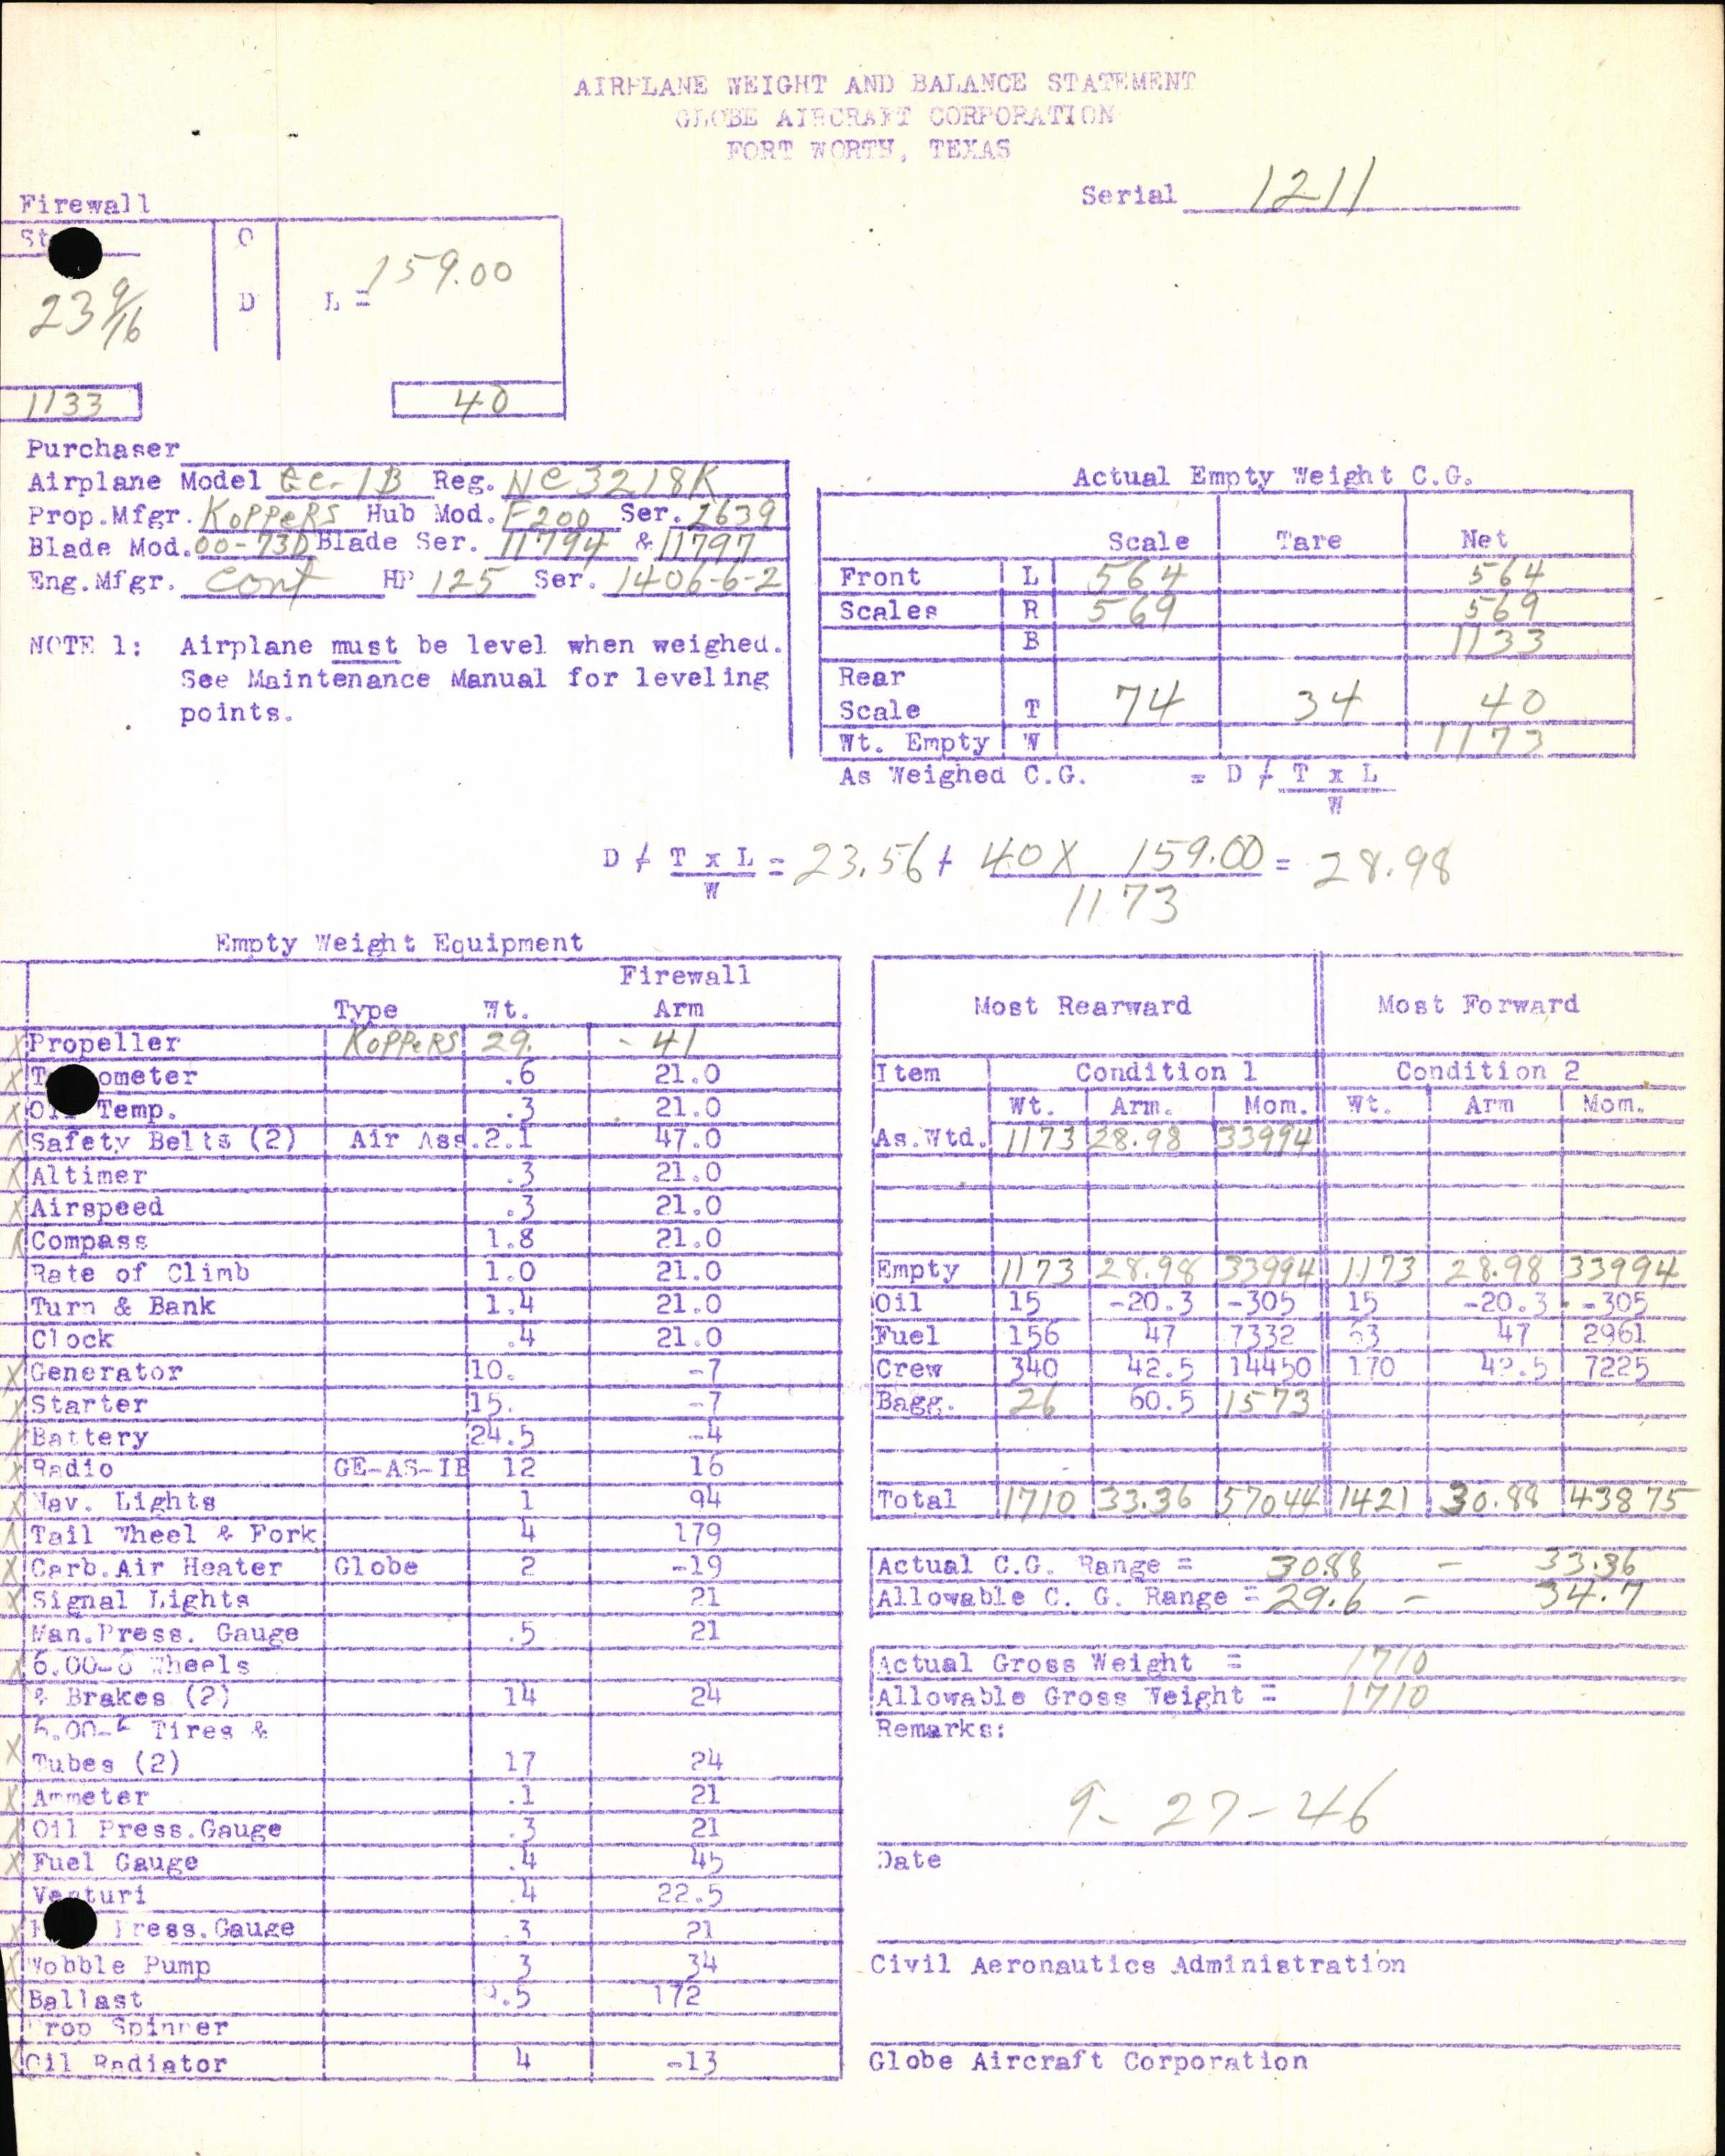 AIRPLANE WEIGHT AND BALANCE STATEMENT
GLOBE AIRCRAFT CORPORATION
FORT WORTH, TEXAS
Serial 1211
Firewall
O
D
23 9/16
L = 159.00
1133
40
Purchaser
Airplane Model GC-1B Reg. NC3218K
Prop.Mfgr. KOPPERS Hub Mod. F200 Ser. 2639
Blade Mod. 00-73D Blade Ser. 11794 & 11797
Eng.Mfgr. Cont HP 125 Ser. 1406-6-2
NOTE 1: Airplane must be level when weighed.
See Maintenance Manual for leveling
points.
Actual Empty Weight C.G.
Scale Tare Net
Front L 564 564
Scales R 569 569
B 1133
Rear
Scale T 74 34 40
Wt. Empty W 1173
As Weighed C.G. = D ≠ T x L
W
D ≠ T x L = 23.56 + 40 X 159.00 = 28.98
W 1173
Empty Weight Equipment
Firewall
Type Wt. Arm
X Propeller KOPPERS 29. - 41
X ometer .6 21.0
X Temp. .3 21.0
X Safety Belts (2) Air Ass. 2.1 47.0
X Altimer .3 21.0
X Airspeed .3 21.0
X Compass 1.8 21.0
Rate of Climb 1.0 21.0
Turn & Bank 1.4 21.0
Clock .4 21.0
X Generator 10. -7
X Starter 15. -7
X Battery 24.5 -4
X Radio GE-AS-1B 12 16
X Nav. Lights 1 94
X Tail Wheel & Fork 4 179
X Carb.Air Heater Globe 2 -19
X Signal Lights 21
Man.Press. Gauge .5 21
X 6.00-6 Wheels
& Brakes (2) 14 24
6.00-6 Tires &
X Tubes (2) 17 24
X Ammeter .1 21
X Oil Press.Gauge .3 21
X Fuel Gauge .4 45
Venturi .4 22.5
X Press.Gauge .3 21
X Wobble Pump 3 34
X Ballast .5 172
Prop Spinner
X Oil Radiator 4 -13
Most Rearward Most Forward
Item Condition 1 Condition 2
Wt. Arm. Mom. Wt. Arm Mom.
As.Wtd. 1173 28.98 33994
Empty 1173 28.98 33994 1173 28.98 33994
Oil 15 -20.3 -305 15 -20.3 -305
Fuel 156 47 7332 63 47 2961
Crew 340 42.5 14450 170 42.5 7225
Bagg. 26 60.5 1573
Total 1710 33.36 57044 1421 30.88 43875
Actual C.G. Range = 30.88 - 33.36
Allowable C. G. Range = 29.6 - 34.7
Actual Gross Weight = 1710
Allowable Gross Weight = 1710
Remarks:
9-27-46
Date
Civil Aeronautics Administration
Globe Aircraft Corporation